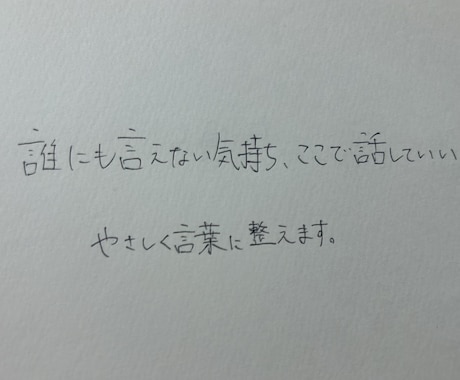 誰にも言えない気持ち、ここで話していい
やさしく言葉に整えます。